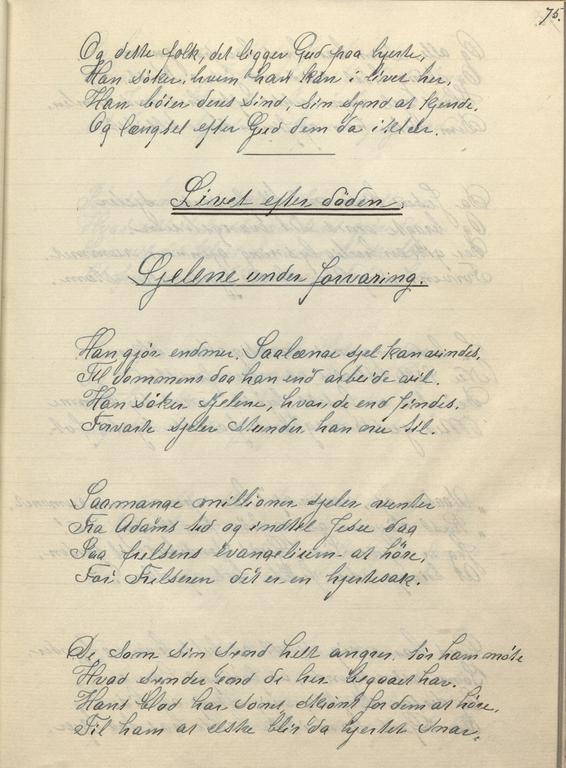 75.
Og dette folk, det ligger Gud paa hjerte,
Han søker, hvem han kan i livet her,
Han bøier deres sind, sin synd at kjende.
Og længsel efter Gud dem da
Livet efter døden.
Sjelene under forvaring.
Han gjør endmer. Saalænge sjel kan vindes.
Til dommens dag han end arbeide vil.
Han søker sjelene, hvor de end findes.
Forvarte sjeler stunder han nu til.
Saamange millioner sjeler venter
Fra Adams tid og indtil Jesu dag
Paa frelsens evangelium at høre,
For Frelseren det er en hjertesak.
De som sin synd helt angrer, tør ham møte
Hvad synder end de her begaaet har.
Hans blod har sonet, skjønt for dem at høre,
Til ham at elske blir da hjertet snar.